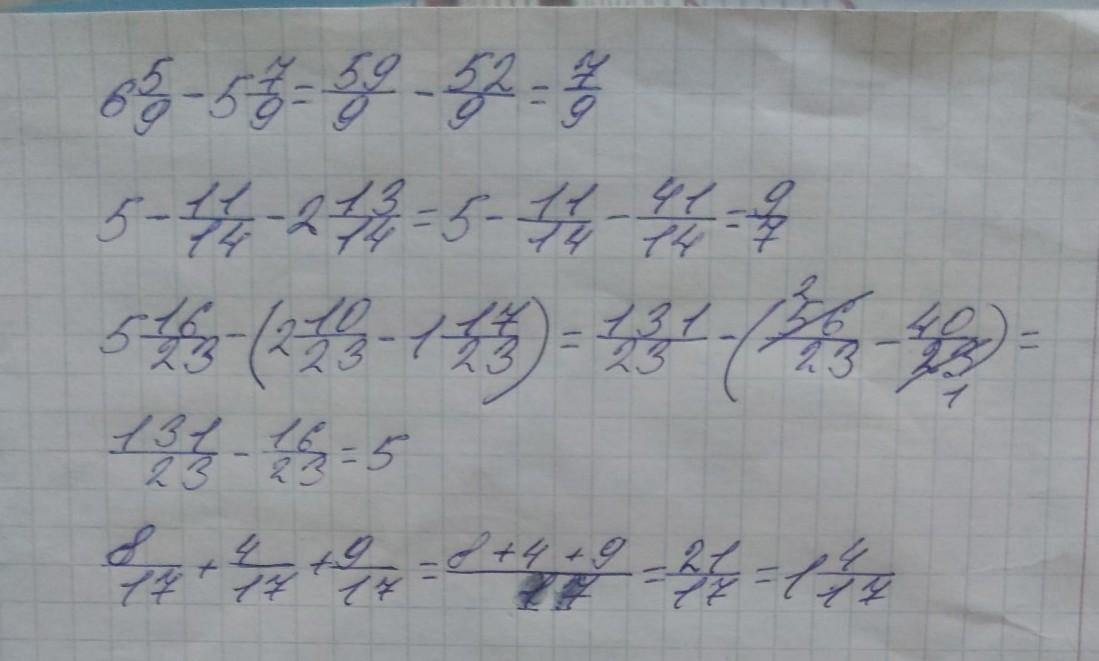 6 5/9 - 5 7/9 = 59/9 - 52/9 = 7/9
5 - 11/14 - 2 13/14 = 5 - 11/14 - 41/14 = 9/7
5 16/23 - (2 10/23 - 1 17/23) = 131/23 - (56/23 - 40/23) = 2 1
131/23 - 16/23 = 5
8/17 + 4/17 + 9/17 = 8+4+9/17 = 21/17 = 1 4/17